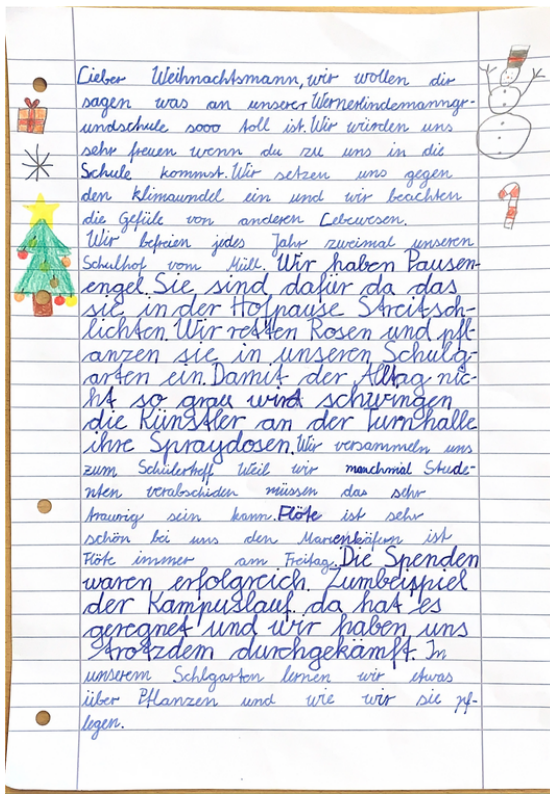 Lieber Weihnachtsmann, wir wollen dir
sagen was an unserer Wernerlindemanngr-
undschule sooo toll ist. Wir würden uns
sehr freuen wenn du zu uns in die
Schule kommst. Wir setzen uns gegen
den klimawndel ein und wir beachten
die Gefüle von anderen Lebewesen.
Wir befreien jedes Jahr zweimal unseren
Schulhof vom Müll. Wir haben Pausen-
engel. Sie sind dafür da das
sie in der Hofpause Streitsch-
lichten. Wir retten Rosen und pfl-
anzen sie in unseren Schulg-
arten ein. Damit der Alltag nic-
ht so grau wird schwingen
die Künstler an der Turnhalle
ihre Spraydosen. Wir versammeln uns
zum Schülertreff Weil wir manchmal Stude-
nten verabschiden müssen das sehr
traurig sein kann. Flöte ist sehr
schön bei uns den Marienkäfern ist
Flöte immer am Freitag. Die Spenden
waren erfolgreich. Zumbeispiel
der Kampuslauf. da hat es
geregnet und wir haben uns
trotzdem durchgekämft. In
unserem Schlgarten lernen wir etwas
über Pflanzen und wie wir sie pf-
legen.